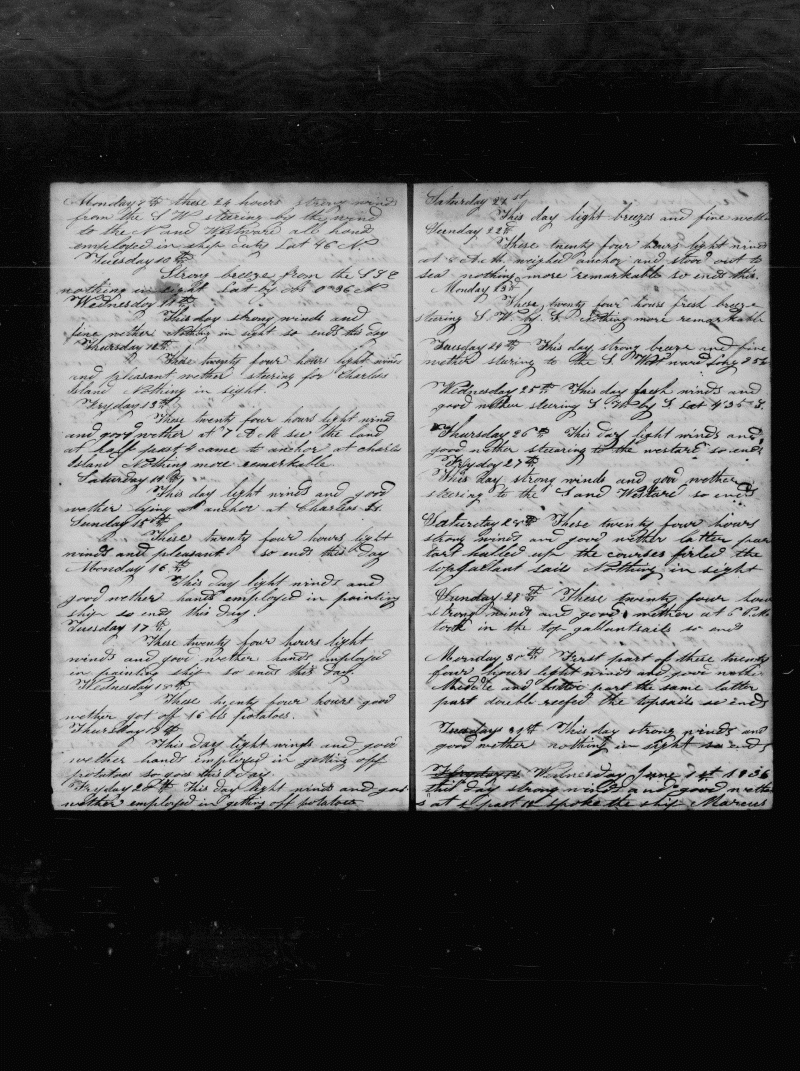 Monday 9th these 24 hours strong wind
from the S W steering by the wind
to the N and Westward all hand
employed in ship duty Lat 46 N
Tuesday 10th
Strong breeze from the S S E
nothing in sight Lat by ob 0°36 N
Wednesday 11th
This day strong winds and
fine wether Nothing in sight so ends this day
Thursday 12th
These twenty four hours light winds
and pleasant wether steering for Charles
Island Nothing in sight
Fryday 13th
These twenty four hours light wind
and good wether at 7 A M see the land
at half past 4 came to anchor at charles
Island Nothing more remarkable
Saturday 14th
This day light winds and good
wether lying at anchor at Charles Is.
Sunday 15th
These twenty four hours light
winds and pleasant so ends this day
Monday 16th
This day light winds and
good wether hands employed in painting
ship so ends this day
Tuesday 17th
These twenty four hours light
winds and good wether hands employed
in painting ship so ends this day.
Wednesday 18th
These twenty four hours good
wether got off 16 bls potatoes.
Thursday 19th
This day light winds and good
wether hands employed in getting off
potatoes so goes this day.
Fryday 20th This day light winds and good
wether employed in getting off potatoes
Saturday 21st
This day light breezes and fine wether
Sunday 22th
These twenty four hours light wind
at A.M. weighed anchor and stood out to
sea nothing more remarkable so ends this.
Monday 23d
These twenty four hours fresh breeze
steering S. W. by. S. Nothing more remarkable
Tuesday 24th This day strong breeze and fine
wether stering to the S. Westward Long
Wednesday 25th This day fresh winds and
good wether steering S. W by S Lat 4°35 S.
Thursday 26th This day light winds and
good wether stearing to the westard so ends
Fryday 27th
This day strong winds and good wether
steering to the S and Westard so ends
Saturday 28th These twenty four hours
strong winds and good wether latter par
tart halled up the courses firled the
topgallent sails Nothing in sight
Sunday 29th These twenty four hour
strong winds and good wether at 6 P.M.
took in the top gallantsails so ends
Monday 30th First part of these twenty
four hours light winds and good wethe
Middle and latter part the same latter
part double reefed the topsails so ends
Tuesdays 31th This day strong winds and
good wether nothing in sight so ends
Wednesday June 1st 1836
this day strong winds and good wether
at past 10 spoke the ship Marcus